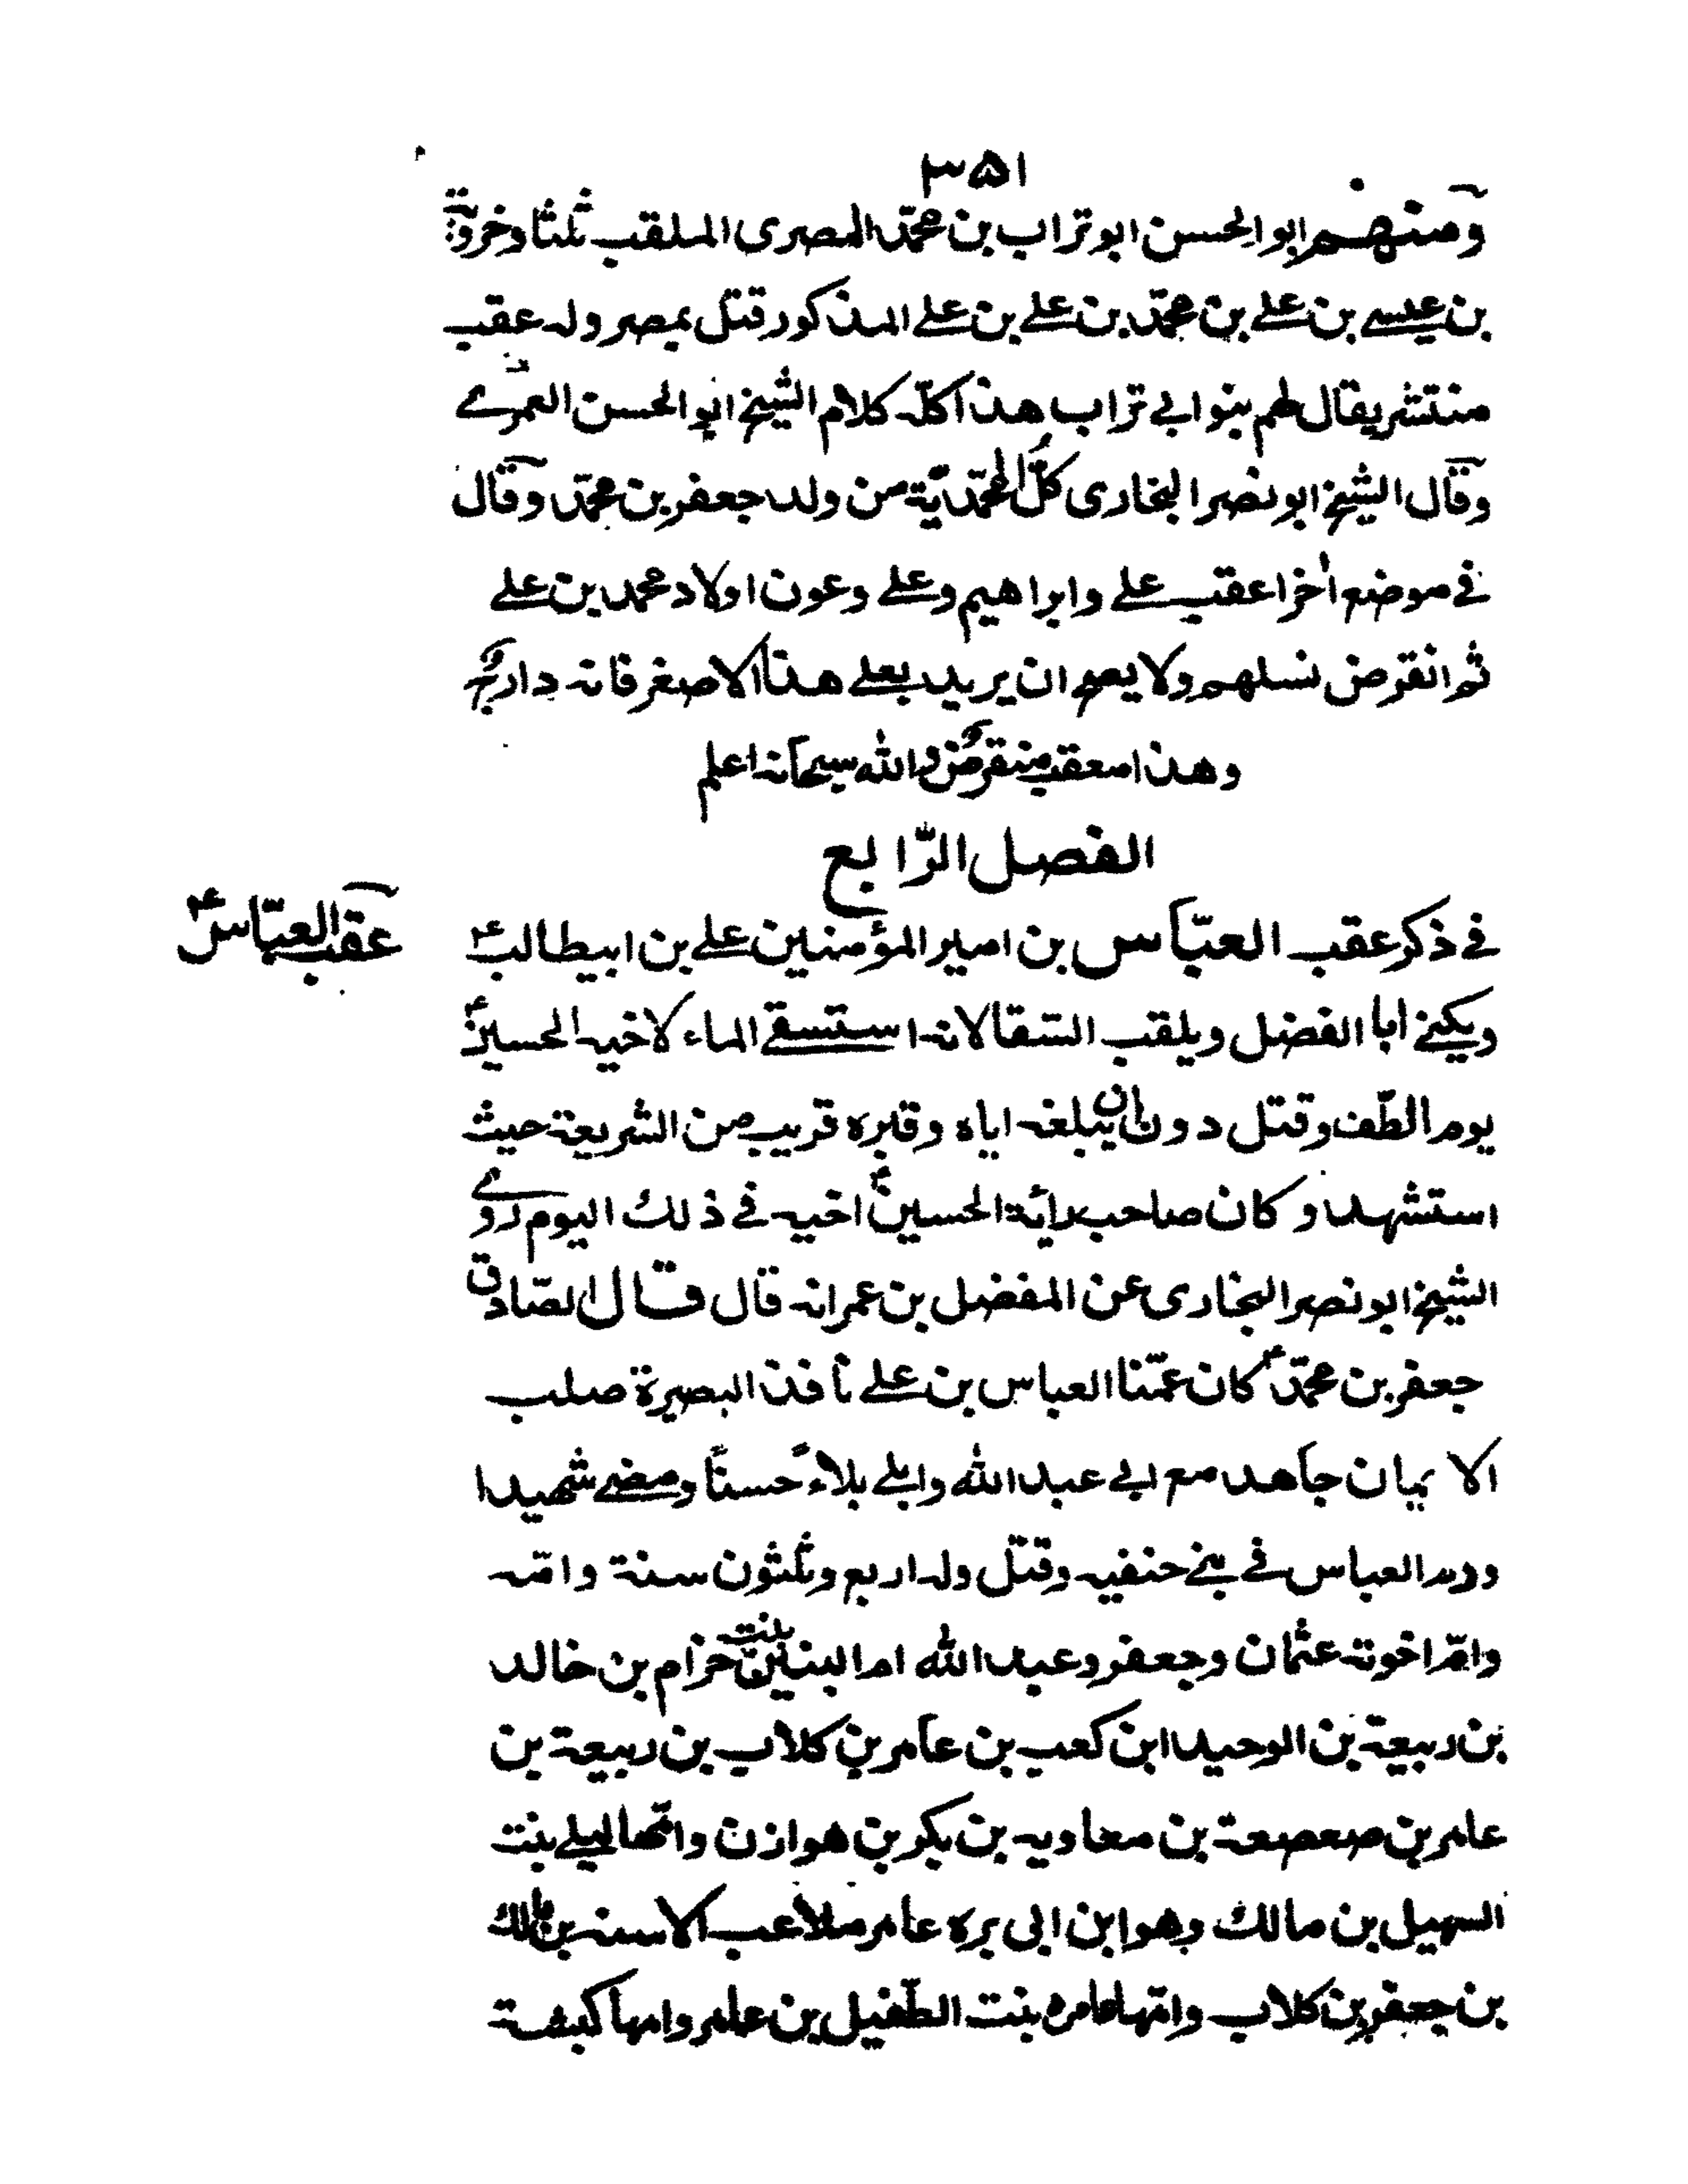 ٣۵١
ومنهم ابو الحسن ابو تراب بن محمّد المصرى الملقب ثلثا وخروبة
بن عيسے بن علے بن محمّد بن علے بن علے المذكور قتل بمصر وله عقب
منتشر يقال لهم بنو ابے تراب هذا كلّه كلام الشيخ ابو الحسن العمرے
وقال الشيخ ابو نصر البخارى كلّ المحمّديّة من ولد جعفر بن محمّد وقال
فے موضع اٰخر اعقب علے وابراهيم وعلے وعون اولاد محمد بن علے
ثم انقرض نسلهم ولا يصح ان يريد بعلے هذا الاصغر فانه دارج
وهذا معقب منقرض والله سبحانه اعلم
الفصل الرّابع
فے ذكر عقب العبّاس بن امير المؤمنين علے بن ابيطالبؑ
عقب العبّاسؑ
ويكنے ابا الفضل ويلقب السّقا لانه استسقے الماء لاخيه الحسينؑ
يوم الطّف وقتل دون ان يبلغه اياه وقبره قريب من الشريعة حيث
استشهد وكان صاحب راية الحسينؑ اخيه فے ذلك اليوم روے
الشيخ ابو نصر البخارى عن المفضل بن عمر انه قال قال الصّادق
جعفر بن محمّدؑ كان عمّنا العباس بن علے نافذ البصيرة صلب
الايمان جاهد مع ابے عبد الله وابلے بلاءً حسنًا ومضے شهيدا
ودم العباس فے بنے حنفيه وقتل وله اربع وثلثون سنة وامّه
وامّ اخوته عثمان وجعفر وعبد الله ام البنين بنت حزام بن خالد
بن ربيعة بن الوحيد ابن كعب بن عامر بن كلاب بن ربيعة بن
عامر بن صعصعة بن معاويه بن بكر بن هوازن وامّها ليلے بنت
السهيل بن مالك وهو ابن ابى بره عامر ملاعب الاسنه بن مالك
بن جعفر بن كلاب وامّها عامره بنت الطّفيل بن عامر وامها كبشة